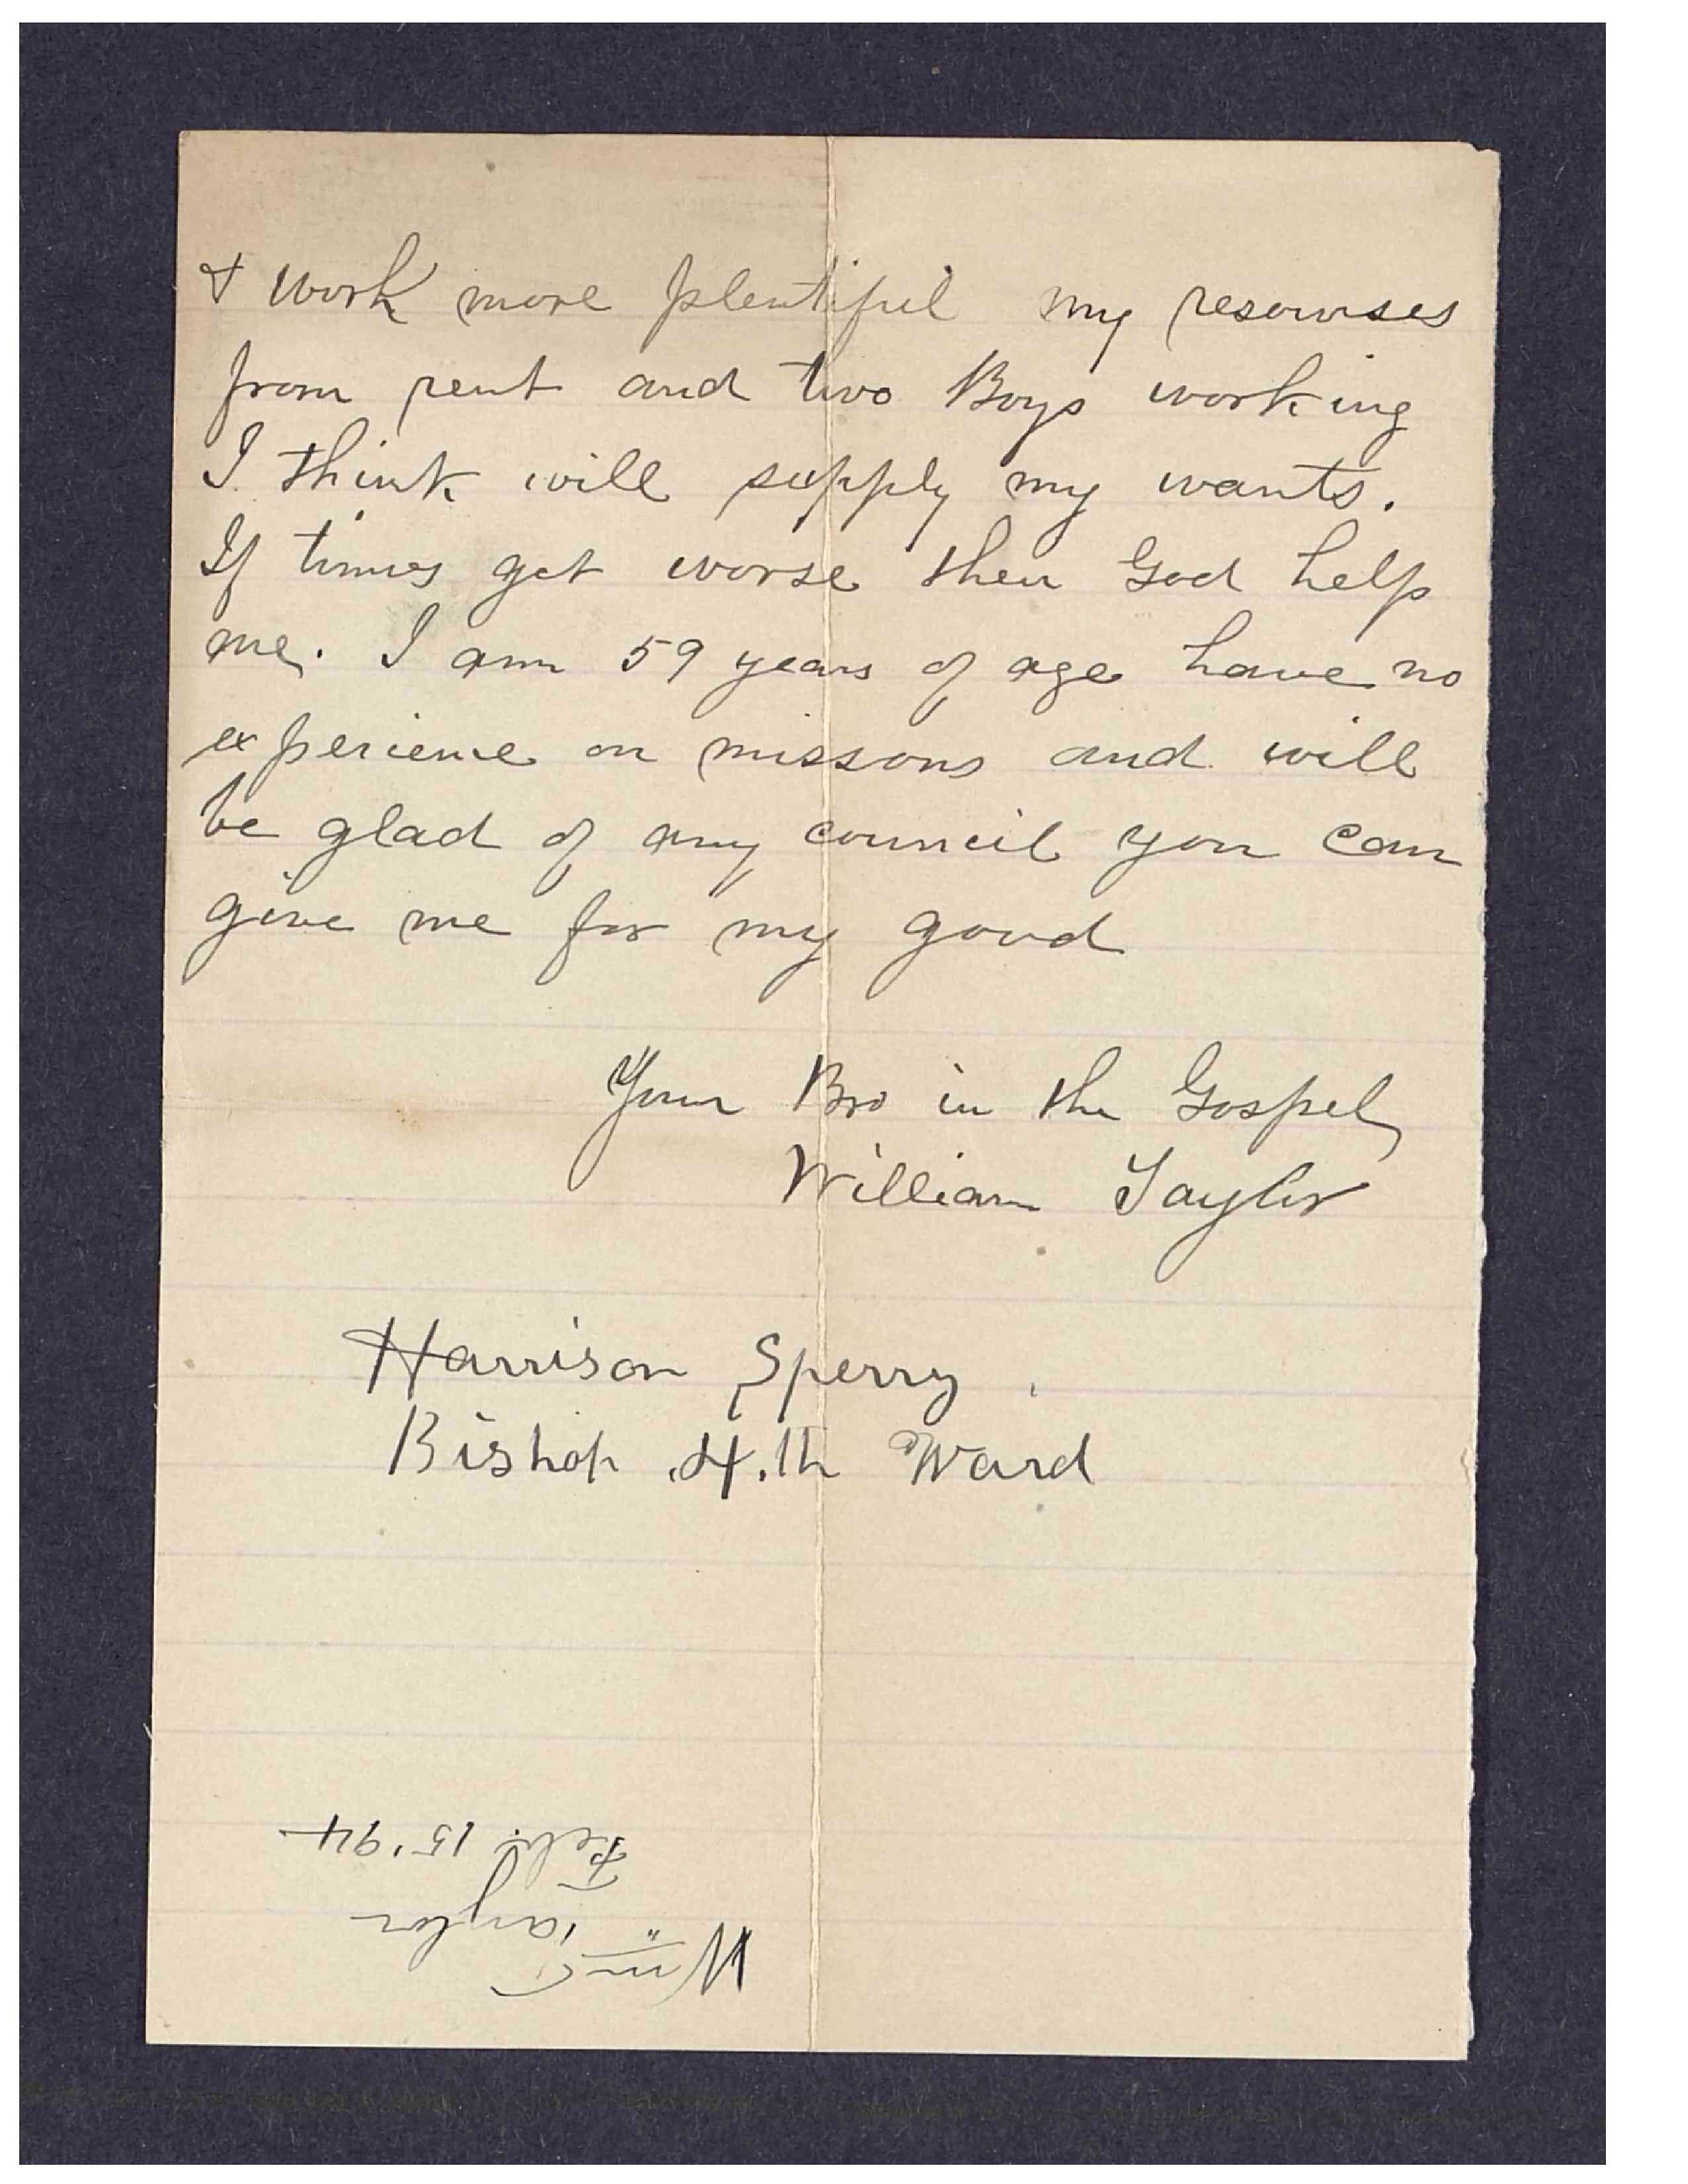 & work more plentiful my resourses
from rent and two Boys working
I think will supply my wants.
If times get worse then God help
me. I am 59 years of age have no
experience on missons and will
be glad of any council you can
give me for my good
Your Bro in the Gospel
William Taylor
Harrison Sperry
Bishop 4.th Ward
Wm Taylor
Feb. 15 '94